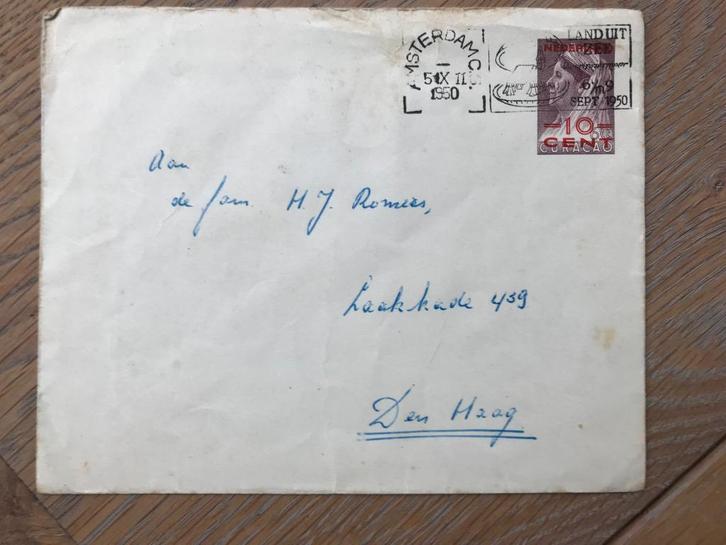 AMSTERDAM.C.
5 IX 11
1950
LAND UIT
ZEE
6/9
SEPT 1950
NEDERLAND
-10-
CENT
CURACAO
Aan
de fam. H. J. Romers,
Laakkade 459
Den Haag